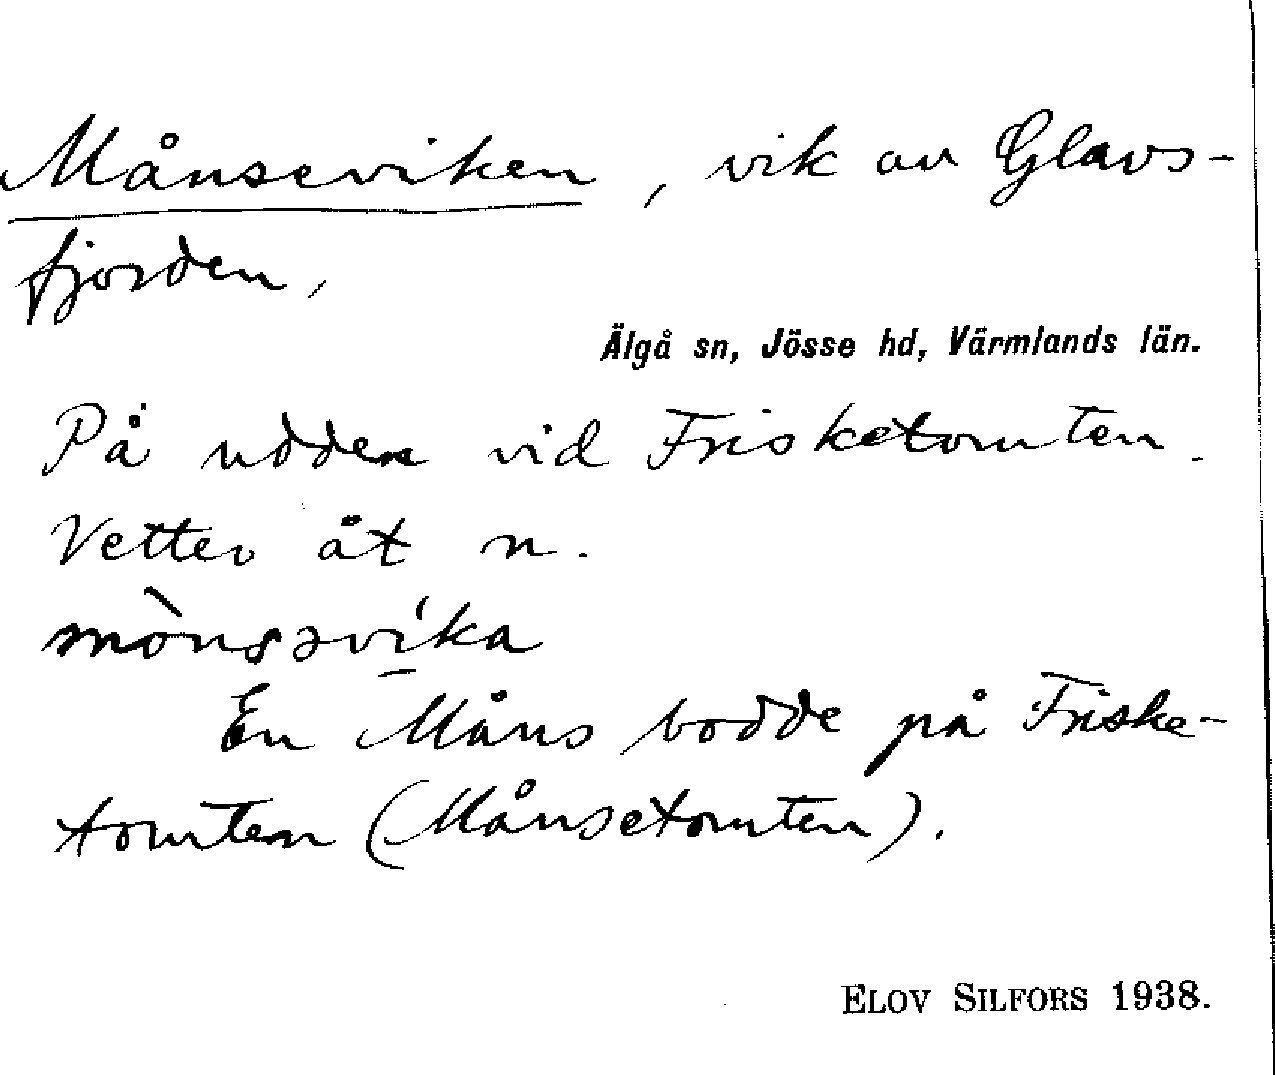 Månseviken, vik av Glavs-
fjorden,
Älgå sn, Jösse hd, Värmlands län.
På udden vid Frisketomten.
Vetter åt n.
mònsəvi'ka
En Måns bodde på Friske-
tomten (Månsetomten).
ELOV SILFORS 1938.